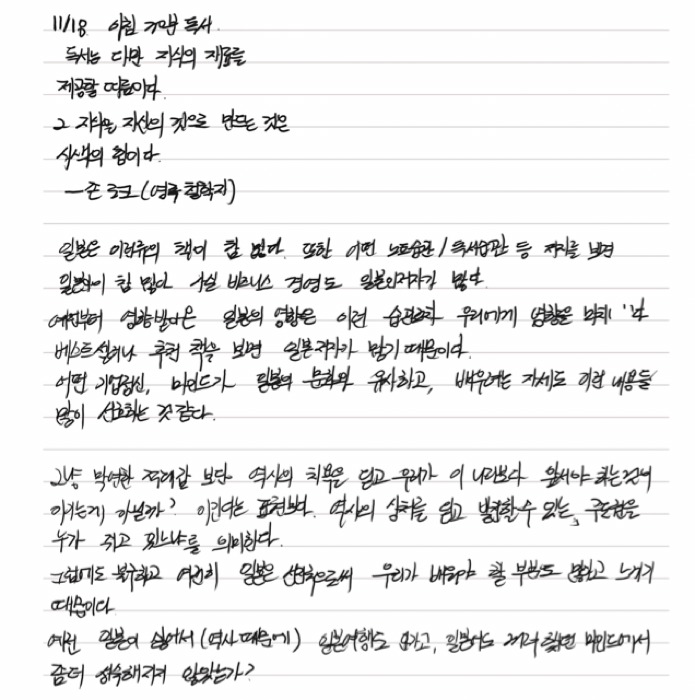 11/18 아침 기분 독서.
독서는 다만 지식의 재료를
제공할 따름이다.
그 지식을 자신의 것으로 만드는 것은
사색의 힘이다.
—존 로크(영국 철학자)
일본은 이런류의 책이 참 많다. 또한 어떤 노트습관/독서습관 등 저자를 보면
일본인이 참 많아 사실 비즈니스 경영도 일본의저자가 많다.
예전부터 영향받아온 일본의 영향은 이런 습관조차 우리에게 영향을 미치
베스트셀러나 추천 책을 보면 일본저자가 많기 때문이다.
어떤 기업정신, 마인드가 일본의 문화와 유사하고, 배우려는 자세도 이런 내용들
많이 선호하는 것 같다.
그냥 막연한 적대감 보단 역사의 치욕은 딛고 우리가 이 나라보다 앞서야 하는것이
이기는게 아닐까? 이긴다는 표현보다. 역사의 상처를 딛고 발전할 수 있는, 주도권은
누가 쥐고 있느냐를 의미한다.
그럼에도 불구하고 여전히 일본은 선진국으로써 우리가 배워야 할 부분도 많다고 느끼기
때문이다.
예전 일본이 싫어서(역사때문에) 일본여행도 안가고, 일본어도 꺼려 했던 마인드에서
좀더 성숙해지지 않았는가?